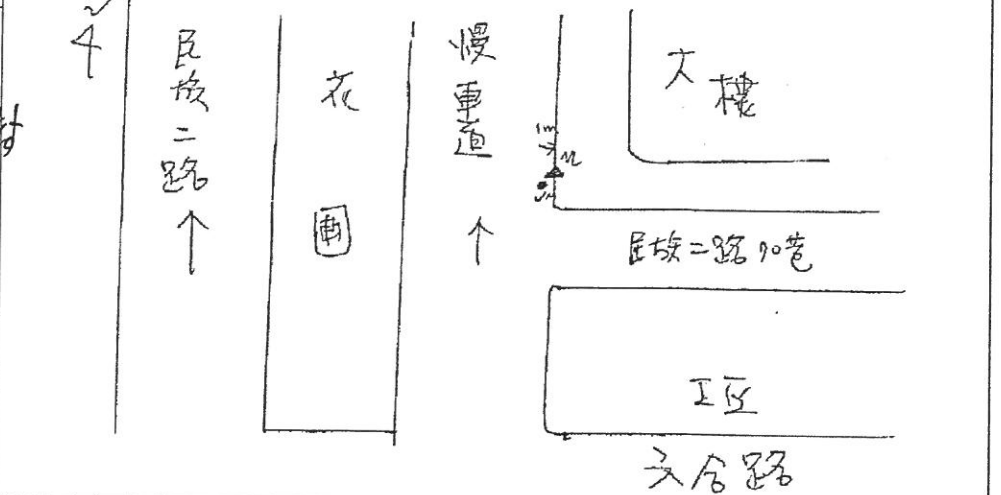 民族二路
花
車
慢車道
大樓
1m
民族二路70巷
工區
六合路